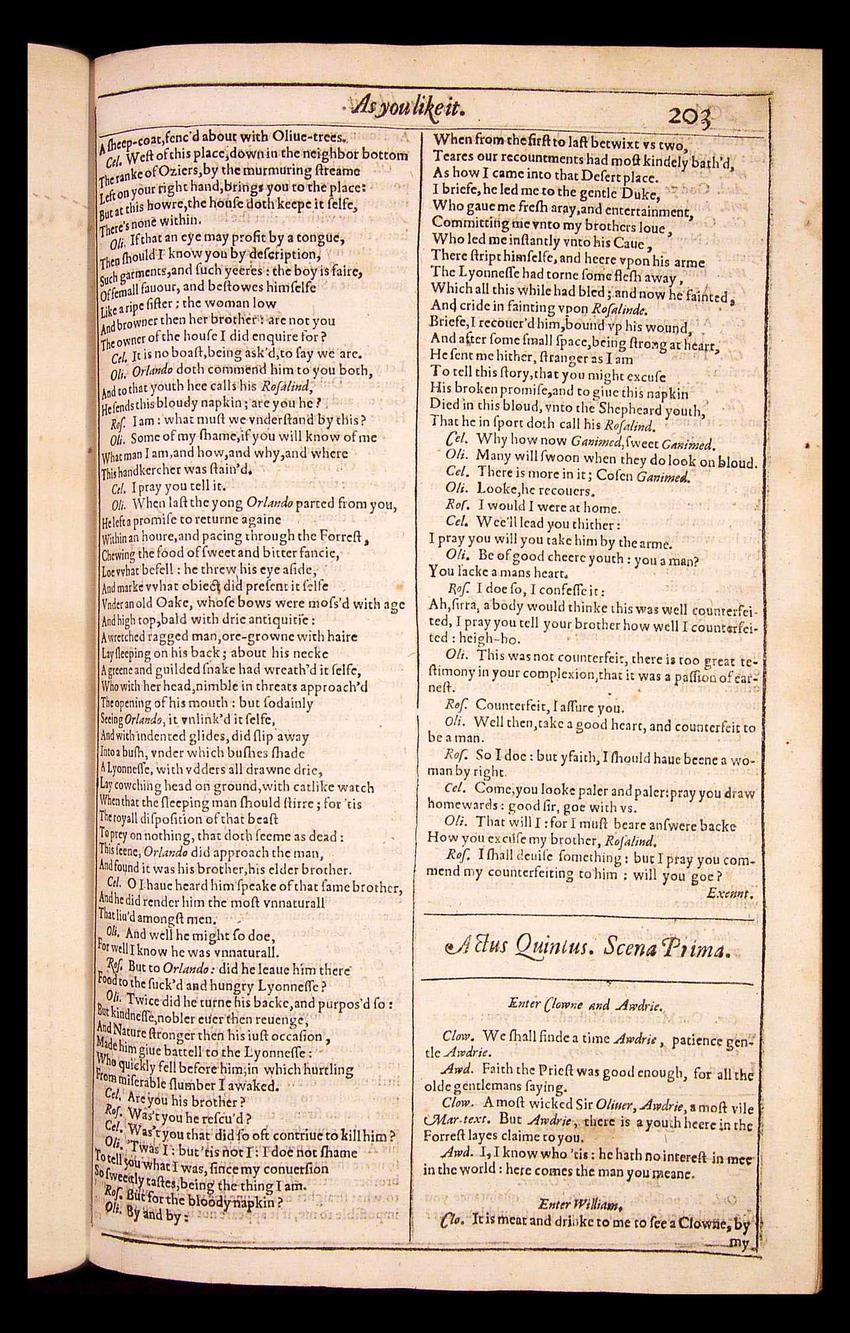 As you like it.
203
A sheep-coat, fenc'd about with Oliue-trees.
Cel. West of this place, down in the neighbor bottom
The ranke of Oziers, by the murmuring streame
Left on your right hand, brings you to the place:
But at this howre, the house doth keepe it selfe,
There's none within.
Oli. If that an eye may profit by a tongue,
Then should I know you by description,
Such garments, and such yeeres: the boy is faire,
Of femall fauour, and bestowes himselfe
Like a ripe sister: the woman low
And browner then her brother: are not you
The owner of the house I did enquire for?
Cel. It is no boast, being ask'd, to say we are.
Oli. Orlando doth commend him to you both,
And to that youth hee calls his Rosalind,
He sends this bloudy napkin; are you he?
Ros. I am: what must we vnderstand by this?
Oli. Some of my shame, if you will know of me
What man I am, and how, and why, and where
This handkercher was stain'd.
Cel. I pray you tell it.
Oli. When last the yong Orlando parted from you,
He left a promise to returne againe
Within an houre, and pacing through the Forrest,
Chewing the food of sweet and bitter fancie,
Loe vvhat befell: he threw his eye aside,
And marke vvhat obiect did present it selfe
Vnder an old Oake, whose bows were moss'd with age
And high top, bald with drie antiquitie:
A wretched ragged man, ore-growne with haire
Lay sleeping on his back; about his necke
A greene and guilded snake had wreath'd it selfe,
Who with her head, nimble in threats approach'd
The opening of his mouth: but sodainly
Seeing Orlando, it vnlink'd it selfe,
And with indented glides, did slip away
Into a bush, vnder which bushes shade
A Lyonnesse, with vdders all drawne drie,
Lay cowching head on ground, with catlike watch
When that the sleeping man should stirre; for 'tis
The royall disposition of that beast
To prey on nothing, that doth seeme as dead:
This seene, Orlando did approach the man,
And found it was his brother, his elder brother.
Cel. O I haue heard him speake of that same brother,
And he did render him the most vnnaturall
That liu'd amongst men.
Oli. And well he might so doe,
For well I know he was vnnaturall.
Ros. But to Orlando: did he leaue him there
Food to the suck'd and hungry Lyonnesse?
Oli. Twice did he turne his backe, and purpos'd so:
But kindnesse, nobler euer then reuenge,
And Nature stronger then his iust occasion,
Made him giue battell to the Lyonnesse:
Who quickly fell before him, in which hurtling
From miserable slumber I awaked.
Cel. Are you his brother?
Ros. Was't you he rescu'd?
Cel. Was't you that did so oft contriue to kill him?
Oli. 'Twas I: but 'tis not I: I doe not shame
To tell you what I was, since my conuersion
So sweetly tastes, being the thing I am.
Ros. But for the bloody napkin?
Oli. By and by:
When from the first to last betwixt vs two,
Teares our recountments had most kindely bath'd,
As how I came into that Desert place.
I briefe, he led me to the gentle Duke,
Who gaue me fresh aray, and entertainment,
Committing me vnto my brothers loue,
Who led me instantly vnto his Caue,
There stript himselfe, and heere vpon his arme
The Lyonnesse had torne some flesh away,
Which all this while had bled; and now he fainted,
And cride in fainting vpon Rosalinde.
Briefe, I recouer'd him, bound vp his wound,
And after some small space, being strong at heart,
He sent me hither, stranger as I am
To tell this story, that you might excuse
His broken promise, and to giue this napkin
Died in this bloud, vnto the Shepheard youth,
That he in sport doth call his Rosalind.
Cel. Why how now Ganimed, sweet Ganimed.
Oli. Many will swoon when they do look on bloud.
Cel. There is more in it; Cosen Ganimed.
Oli. Looke, he recouers.
Ros. I would I were at home.
Cel. Wee'll lead you thither:
I pray you will you take him by the arme.
Oli. Be of good cheere youth: you a man?
You lacke a mans heart.
Ros. I doe so, I confesse it:
Ah, sirra, a body would thinke this was well counterfei-
ted, I pray you tell your brother how well I counterfei-
ted: heigh-ho.
Oli. This was not counterfeit, there is too great te-
stimony in your complexion, that it was a passion of ear-
nest.
Ros. Counterfeit, I assure you.
Oli. Well then, take a good heart, and counterfeit to
be a man.
Ros. So I doe: but yfaith, I should haue beene a wo-
man by right.
Cel. Come, you looke paler and paler: pray you draw
homewards: good sir, goe with vs.
Oli. That will I: for I must beare answere backe
How you excuse my brother, Rosalind.
Ros. I shall deuise something: but I pray you com-
mend my counterfeiting to him: will you goe?
Exeunt.
Actus Quintus. Scena Prima.
Enter Clowne and Awdrie.
Clow. We shall finde a time Awdrie, patience gen-
tle Awdrie.
Awd. Faith the Priest was good enough, for all the
olde gentlemans saying.
Clow. A most wicked Sir Oliuer, Awdrie, a most vile
Mar-text. But Awdrie, there is a youth heere in the
Forrest layes claime to you.
Awd. I, I know who 'tis: he hath no interest in mee
in the world: here comes the man you meane.
Enter William.
Clo. It is meat and drinke to me to see a Clowne, by
my